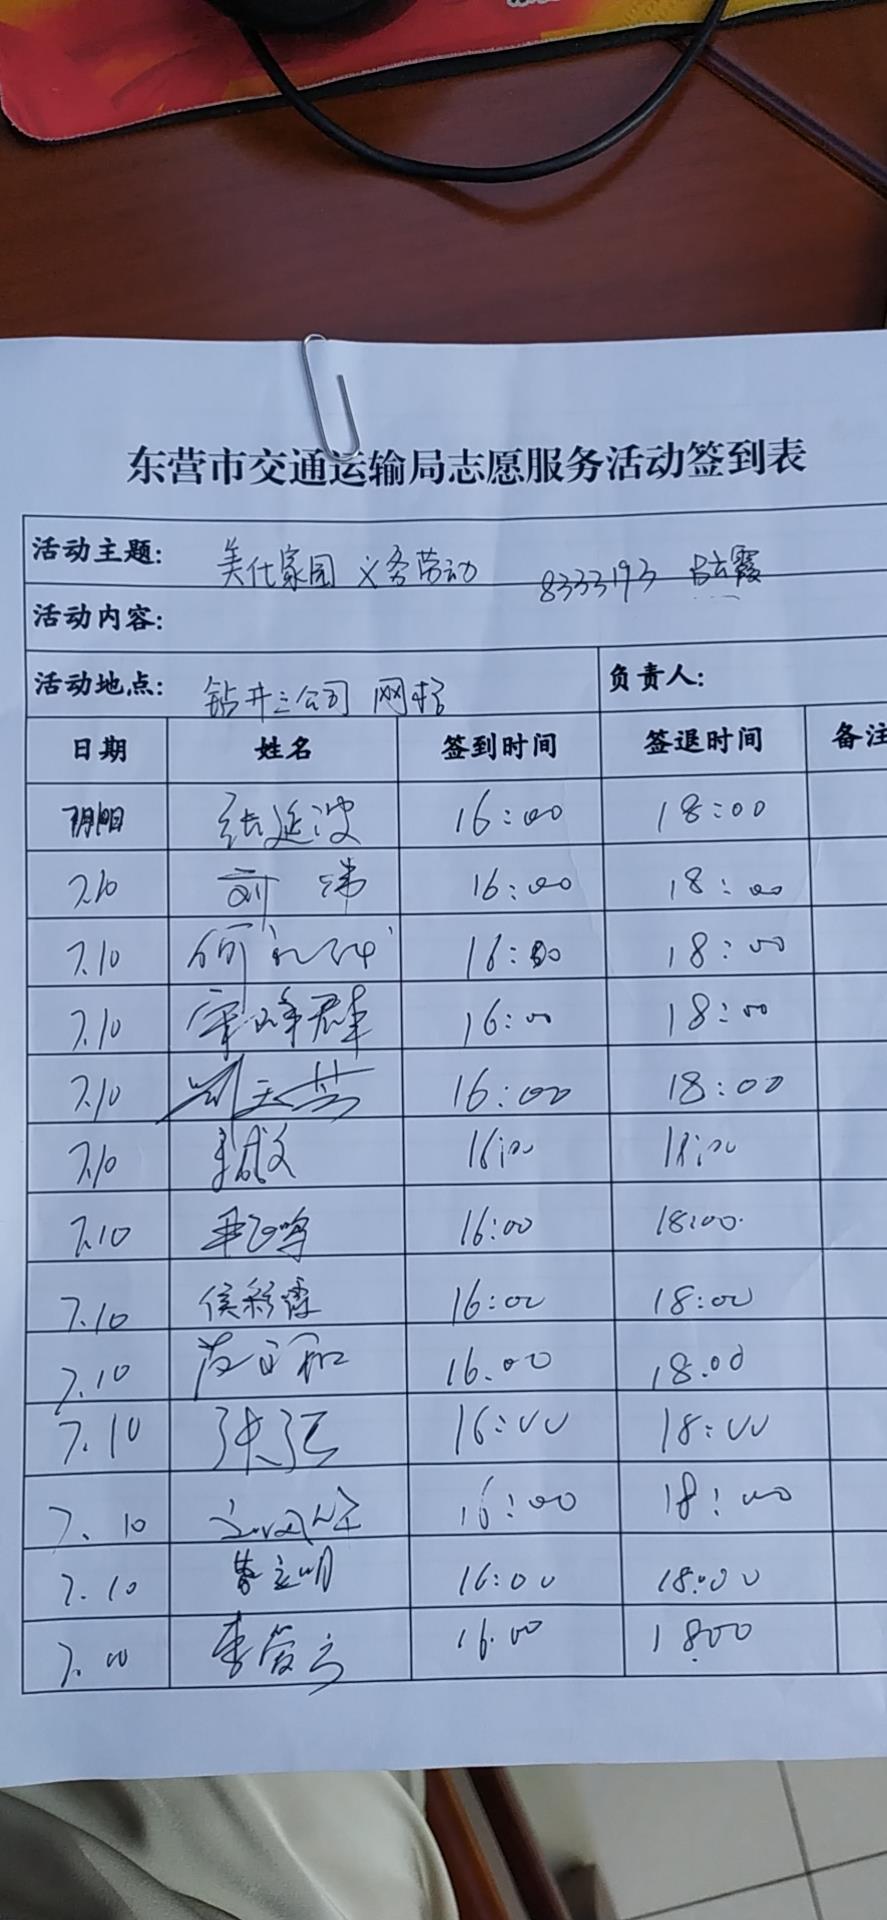 东营市交通运输局志愿服务活动签到表
活动主题: 美仕家园 义务劳动 8333193
活动内容:
活动地点: 钻井三公司 网格 负责人:
日期 姓名 签到时间 签退时间 备注
张延波 16:00 18:00
7.10 刘 沛 16:00 18:00
7.10 何 16:00 18:00
7.10 宋峰群 16:00 18:00
7.10 刘 16:00 18:00
7.10 16:00 18:00
7.10 16:00 18:00
7.10 侯彩霞 16:00 18:00
7.10 16.00 18.00
7.10 张强 16:00 18:00
7.10 16:00 18:00
7.10 16:00 18:00
李爱云 16:00 18:00